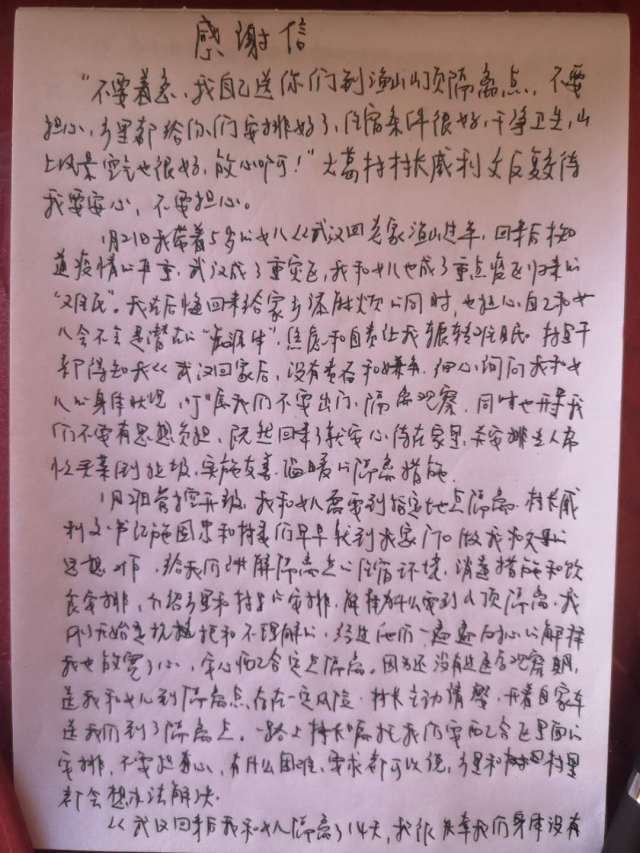 感谢信
“不要着急，我自己送你们到渔山山顶隔离点，不要
担心，乡里都给你们安排好了，住宿条件很好，干净卫生，山
上风景空气也很好，放心啊！”大葛村村长戚利文反复待
我要安心，不要担心。
1月21日我带着5岁的女儿从武汉回老家渔山过年，回来后知
道疫情的严重，武汉成了重灾区，我和女儿也成了重点疫区归来的
。我在后悔回来给家乡添麻烦的同时，也担心自己和女
儿会不会是潜在的，焦虑和自责让我辗转难眠。村里干
部得知我从武汉回家后，没有责怪和嫌弃，细心询问我和女
儿的身体状况，叮嘱我们不要出门，隔离观察，同时也开导我
们不要有思想负担，既然回来了就安心待在家里，安排专人帮
忙买菜倒垃圾，实施友善、温暖的隔离措施。
管控升级，我和女儿需要到指定地点隔离。村长戚
利文、书记施国忠和村委们早早就到我家门口做我和父母的
思想工作，给我们讲解隔离点的住宿环境，消毒措施和饮
食安排，介绍乡里和村里的安排，解释为什么要到山顶隔离。我
刚开始是抗拒和不理解的，经过他们一遍遍耐心的解释
我也放宽了心，安心配合定点隔离。因为还没有过医学观察期，
送我和女儿到隔离点存在一定风险，村长主动请缨，开着自家车
送我们到了隔离点。一路上村长嘱托我们要配合这里面的
安排，不要担心，有什么困难、要求都可以说，乡里和村里
都会想办法解决。
从武汉回来后我和女儿隔离了14天，我很庆幸我们身体没有